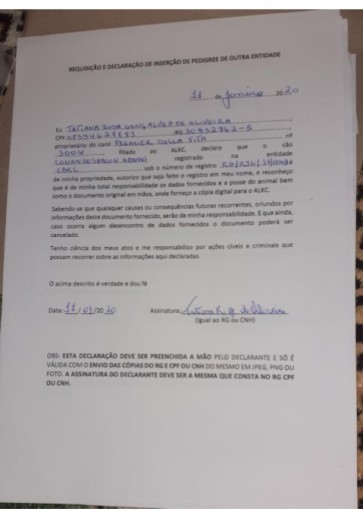 REQUISIÇÃO E DECLARAÇÃO DE INSERÇÃO DE PEDIGREE DE OUTRA ENTIDADE
11 de Janeiro de 2020
Eu TATIANA ROSA GONÇALVES DE OLIVEIRA,
CPF RG nº
proprietário do canil PREMIER DELLA VITA
filiado ao ALKC, declaro que o cão
registrado na entidade
sob o número de registro
de minha propriedade, autorizo que seja feito o registro em meu nome, e reconheço
que é de minha total responsabilidade os dados fornecidos e a posse do animal bem
como o documento original em mãos, onde forneço a cópia digital para o ALKC.
Sabendo-se que quaisquer causas ou consequências futuras recorrentes, oriundos por
informações deste documento fornecido, serão de minha responsabilidade. E que ainda,
caso ocorra algum desencontro de dados fornecidos o documento poderá ser
cancelado.
Tenho ciência dos meus atos e me responsabilizo por ações cíveis e criminais que
possam recorrer sobre as informações aqui declaradas.
O acima descrito é verdade e dou fé
Data: 11/01/2020 Assinatura: Tatiana R. G. de Oliveira
(igual ao RG ou CNH)
OBS: ESTA DECLARAÇÃO DEVE SER PREENCHIDA A MÃO PELO DECLARANTE E SÓ É
VÁLIDA COM O ENVIO DAS CÓPIAS DO RG E CPF OU CNH DO MESMO EM JPEG, PNG OU
FOTO. A ASSINATURA DO DECLARANTE DEVE SER A MESMA QUE CONSTA NO RG CPF
OU CNH.